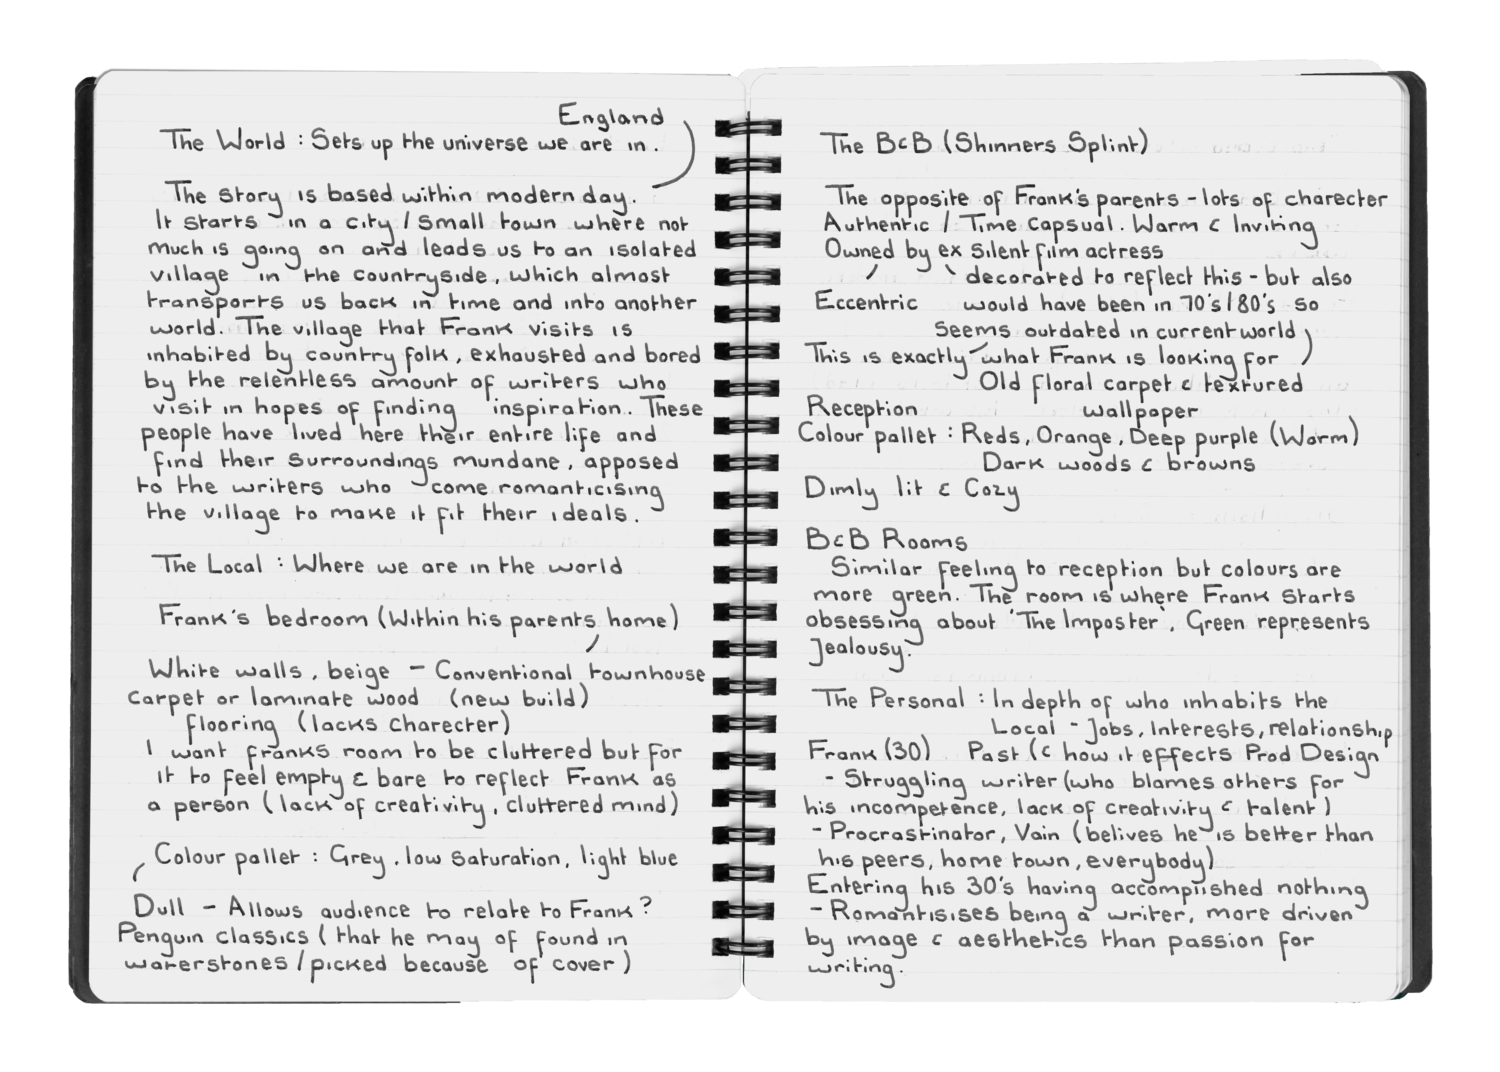 England
The World : Sets up the universe we are in .
The story is based within modern day.
It starts in a city / small town where not
much is going on and leads us to an isolated
village in the countryside, which almost
transports us back in time and into another
world. The village that Frank visits is
inhabited by country folk, exhausted and bored
by the relentless amount of writers who
visit in hopes of finding inspiration. These
people have lived here their entire life and
find their surroundings mundane, apposed
to the writers who come romanticising
the village to make it fit their ideals.
The Local : Where we are in the world
Frank's bedroom (Within his parents home)
White walls, beige - Conventional townhouse
carpet or laminate wood (new build)
flooring (lacks charecter)
I want franks room to be cluttered but for
it to feel empty & bare to reflect Frank as
a person (lack of creativity, cluttered mind)
Colour pallet : Grey, low saturation, light blue
Dull - Allows audience to relate to Frank?
Penguin classics (that he may of found in
waterstones / picked because of cover)
The B&B (Shinners Splint)
The opposite of Frank's parents - lots of charecter
Authentic / Time capsual. Warm & Inviting
Owned by ex silent film actress
decorated to reflect this - but also
Eccentric would have been in 70's/80's so
Seems outdated in current world
This is exactly what Frank is looking for
Old floral carpet & textured
Reception wallpaper
Colour pallet : Reds, Orange, Deep purple (Warm)
Dark woods & browns
Dimly lit & Cozy
B&B Rooms
Similar feeling to reception but colours are
more green. The room is where Frank starts
obsessing about 'The Imposter', Green represents
Jealousy.
The Personal : In depth of who inhabits the
Local - Jobs, Interests, relationship
Frank (30) Past (& how it effects Prod Design
- Struggling writer (who blames others for
his incompetence, lack of creativity & talent)
- Procrastinator, Vain (belives he is better than
his peers, home town, everybody)
Entering his 30's having accomplished nothing
- Romantisises being a writer, more driven
by image & aesthetics than passion for
writing.